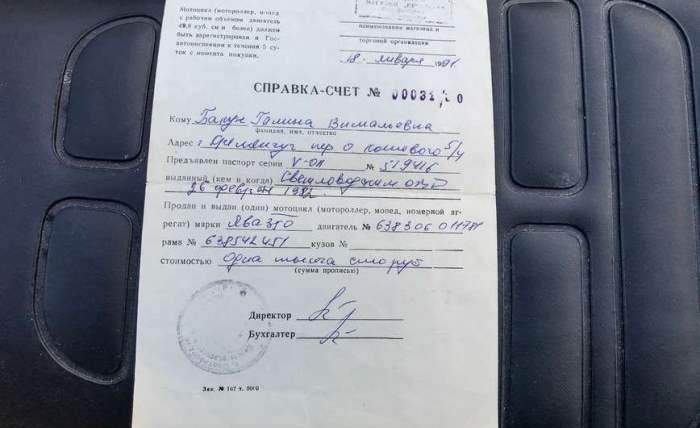 Мотоцикл (мотороллер, мопед
с рабочим объемом двигатель
49,8 куб. см и более) должен
быть зарегистрирован в Гос-
автоинспекции в течении 5 су-
ток с момента покупки.
наименование магазина и
торговой организации
18. января 1991
СПРАВКА-СЧЕТ №
Кому Галина Витальевна
фамилия, имя, отчество
Адрес г. Кременчуг пер О Кошевого 5/4
Предъявлен паспорт серии V-ОЛ № 519416
выданный (кем и когда) Светловодским
26 февраля
Продан и выдан (один) мотоцикл (мотороллер, мопед, номерной аг-
регат) марки Ява 350 двигатель № 638306 011781
рама № 638542451 кузов №
стоимостью Одна тысяча сто руб
(сумма прописью)
Директор
Бухгалтер
Зак. № 167 т. 5000